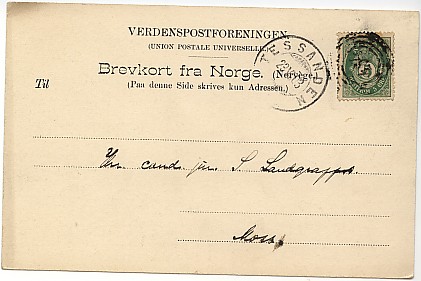 VERDENSPOSTFORENINGEN.
(UNION POSTALE UNIVERSELLE)
Brevkort fra Norge. (Norvège.)
(Paa denne Side skrives kun Adressen.)
TESSANDEN
Til
cand. jur. S. Landgraff
Moss